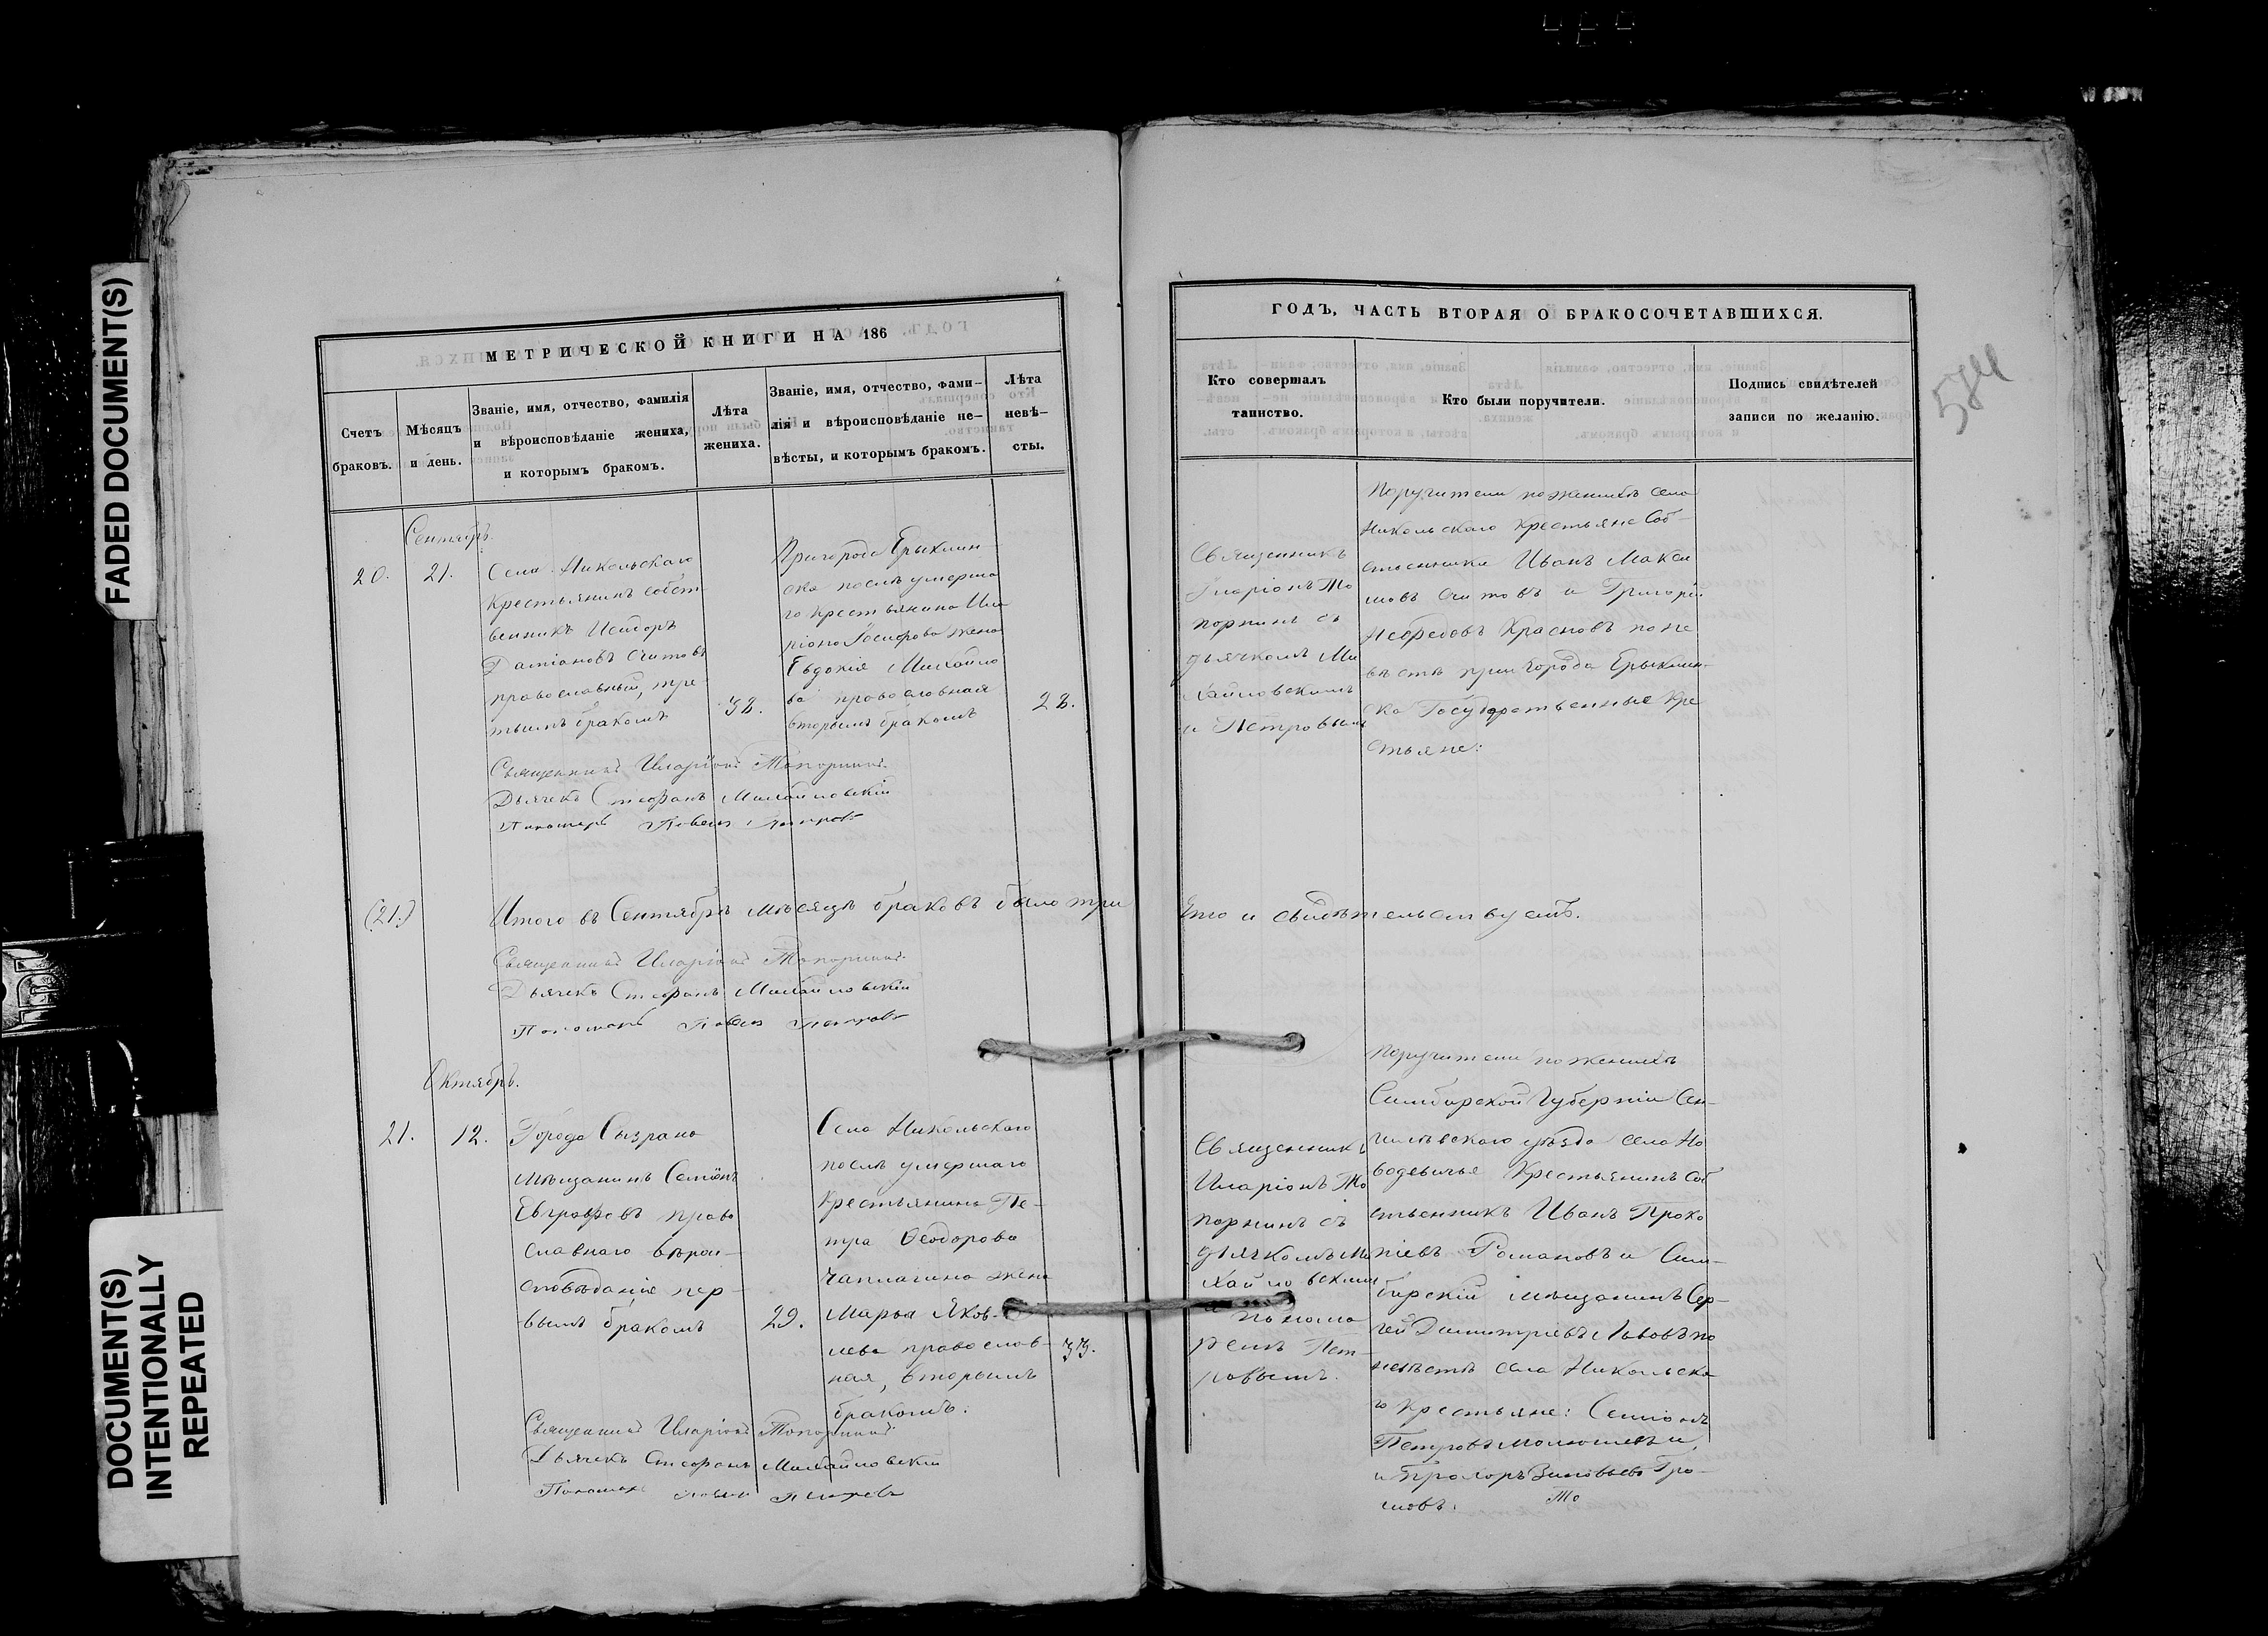 469
FADED DOCUMENT(S)
DOCUMENT(S)
INTENTIONALLY
REPEATED
МЕТРИЧЕСКОЙ КНИГИ НА 186
Счетъ
браковъ.
Мѣсяцъ
и день.
Званіе, имя, отчество, фамилія
и вѣроисповѣданіе жениха,
и которымъ бракомъ.
Лѣта
жениха.
Званіе, имя, отчество, фами-
лія и вѣроисповѣданіе не-
вѣсты, и которымъ бракомъ.
Лѣта
невѣ-
сты.
Сентябрь.
20.
21.
Села Никольскаго
Крестьянинъ собст-
венникъ Исидоръ
Даміановъ Считовъ
православный, тре-
тьимъ бракомъ
32.
Пригорода Ерыклин-
ска послѣ умерша
го крестьянина Ила
ріона Іосифова жена
Евдокія Михайло
ва православная
вторымъ бракомъ
28.
Священникъ Иларіонъ Топорнинъ.
Дьячекъ Стефанъ Михайловскій
Пономарь Павелъ Петровъ
(21.)
Итого въ Сентябрѣ мѣсяцѣ браковъ было три
Священникъ Иларіонъ Топорнинъ.
Дьячекъ Стефанъ Михайловскій
Пономарь Павелъ Петровъ
Октябрь.
21.
12.
Города Сызрана
мѣщанинъ Семіонъ
Евграфовъ право
славнаго вѣрои-
сповѣданія пер-
вымъ бракомъ
29.
Села Никольскаго
послѣ умершаго
Крестьянина Пе-
тра Ѳеодорова
Чаплагина жена
Марья Яков-
лева православ-
ная, вторымъ
бракомъ.
33.
Священникъ Иларіонъ Топорнинъ.
Дьячекъ Стефанъ Михайловскій
Пономарь Павелъ Петровъ
ГОДЪ, ЧАСТЬ ВТОРАЯ О БРАКОСОЧЕТАВШИХСЯ.
Кто совершалъ
таинство.
Кто были поручители.
Подпись свидѣтелей
записи по желанію.
574
Священникъ
Иларіонъ То
порнинъ съ
дьячкомъ Ми
хайловскимъ
и Петровымъ
Поручители по женихѣ села
Никольскаго Крестьяне Соб-
ственники Иванъ Макси
мовъ Считовъ и Григорій
Нефедовъ Красновъ по не
вѣстѣ пригорода Ерыклин-
ска Государственные Кре
стьяне:
Что и свидѣтельствуемъ.
Священникъ
Иларіонъ То
порнинъ съ
дьячкомъ Ми
хайловскимъ
и понома
ремъ Пет-
ровымъ.
Поручители по женихѣ
Симбирской Губерніи Сен-
гилѣевскаго уѣзда села Но
водевичья Крестьянинъ Соб
ственникъ Иванъ Проко
піевъ Романовъ и Сим-
бирскій мѣщанинъ Сер-
гей Димитріевъ Львовъ по
невѣстѣ села Никольска
го Крестьяне: Семіонъ
Петровъ
и Прохоръ Зиновьевъ Гро-
мовъ.
То